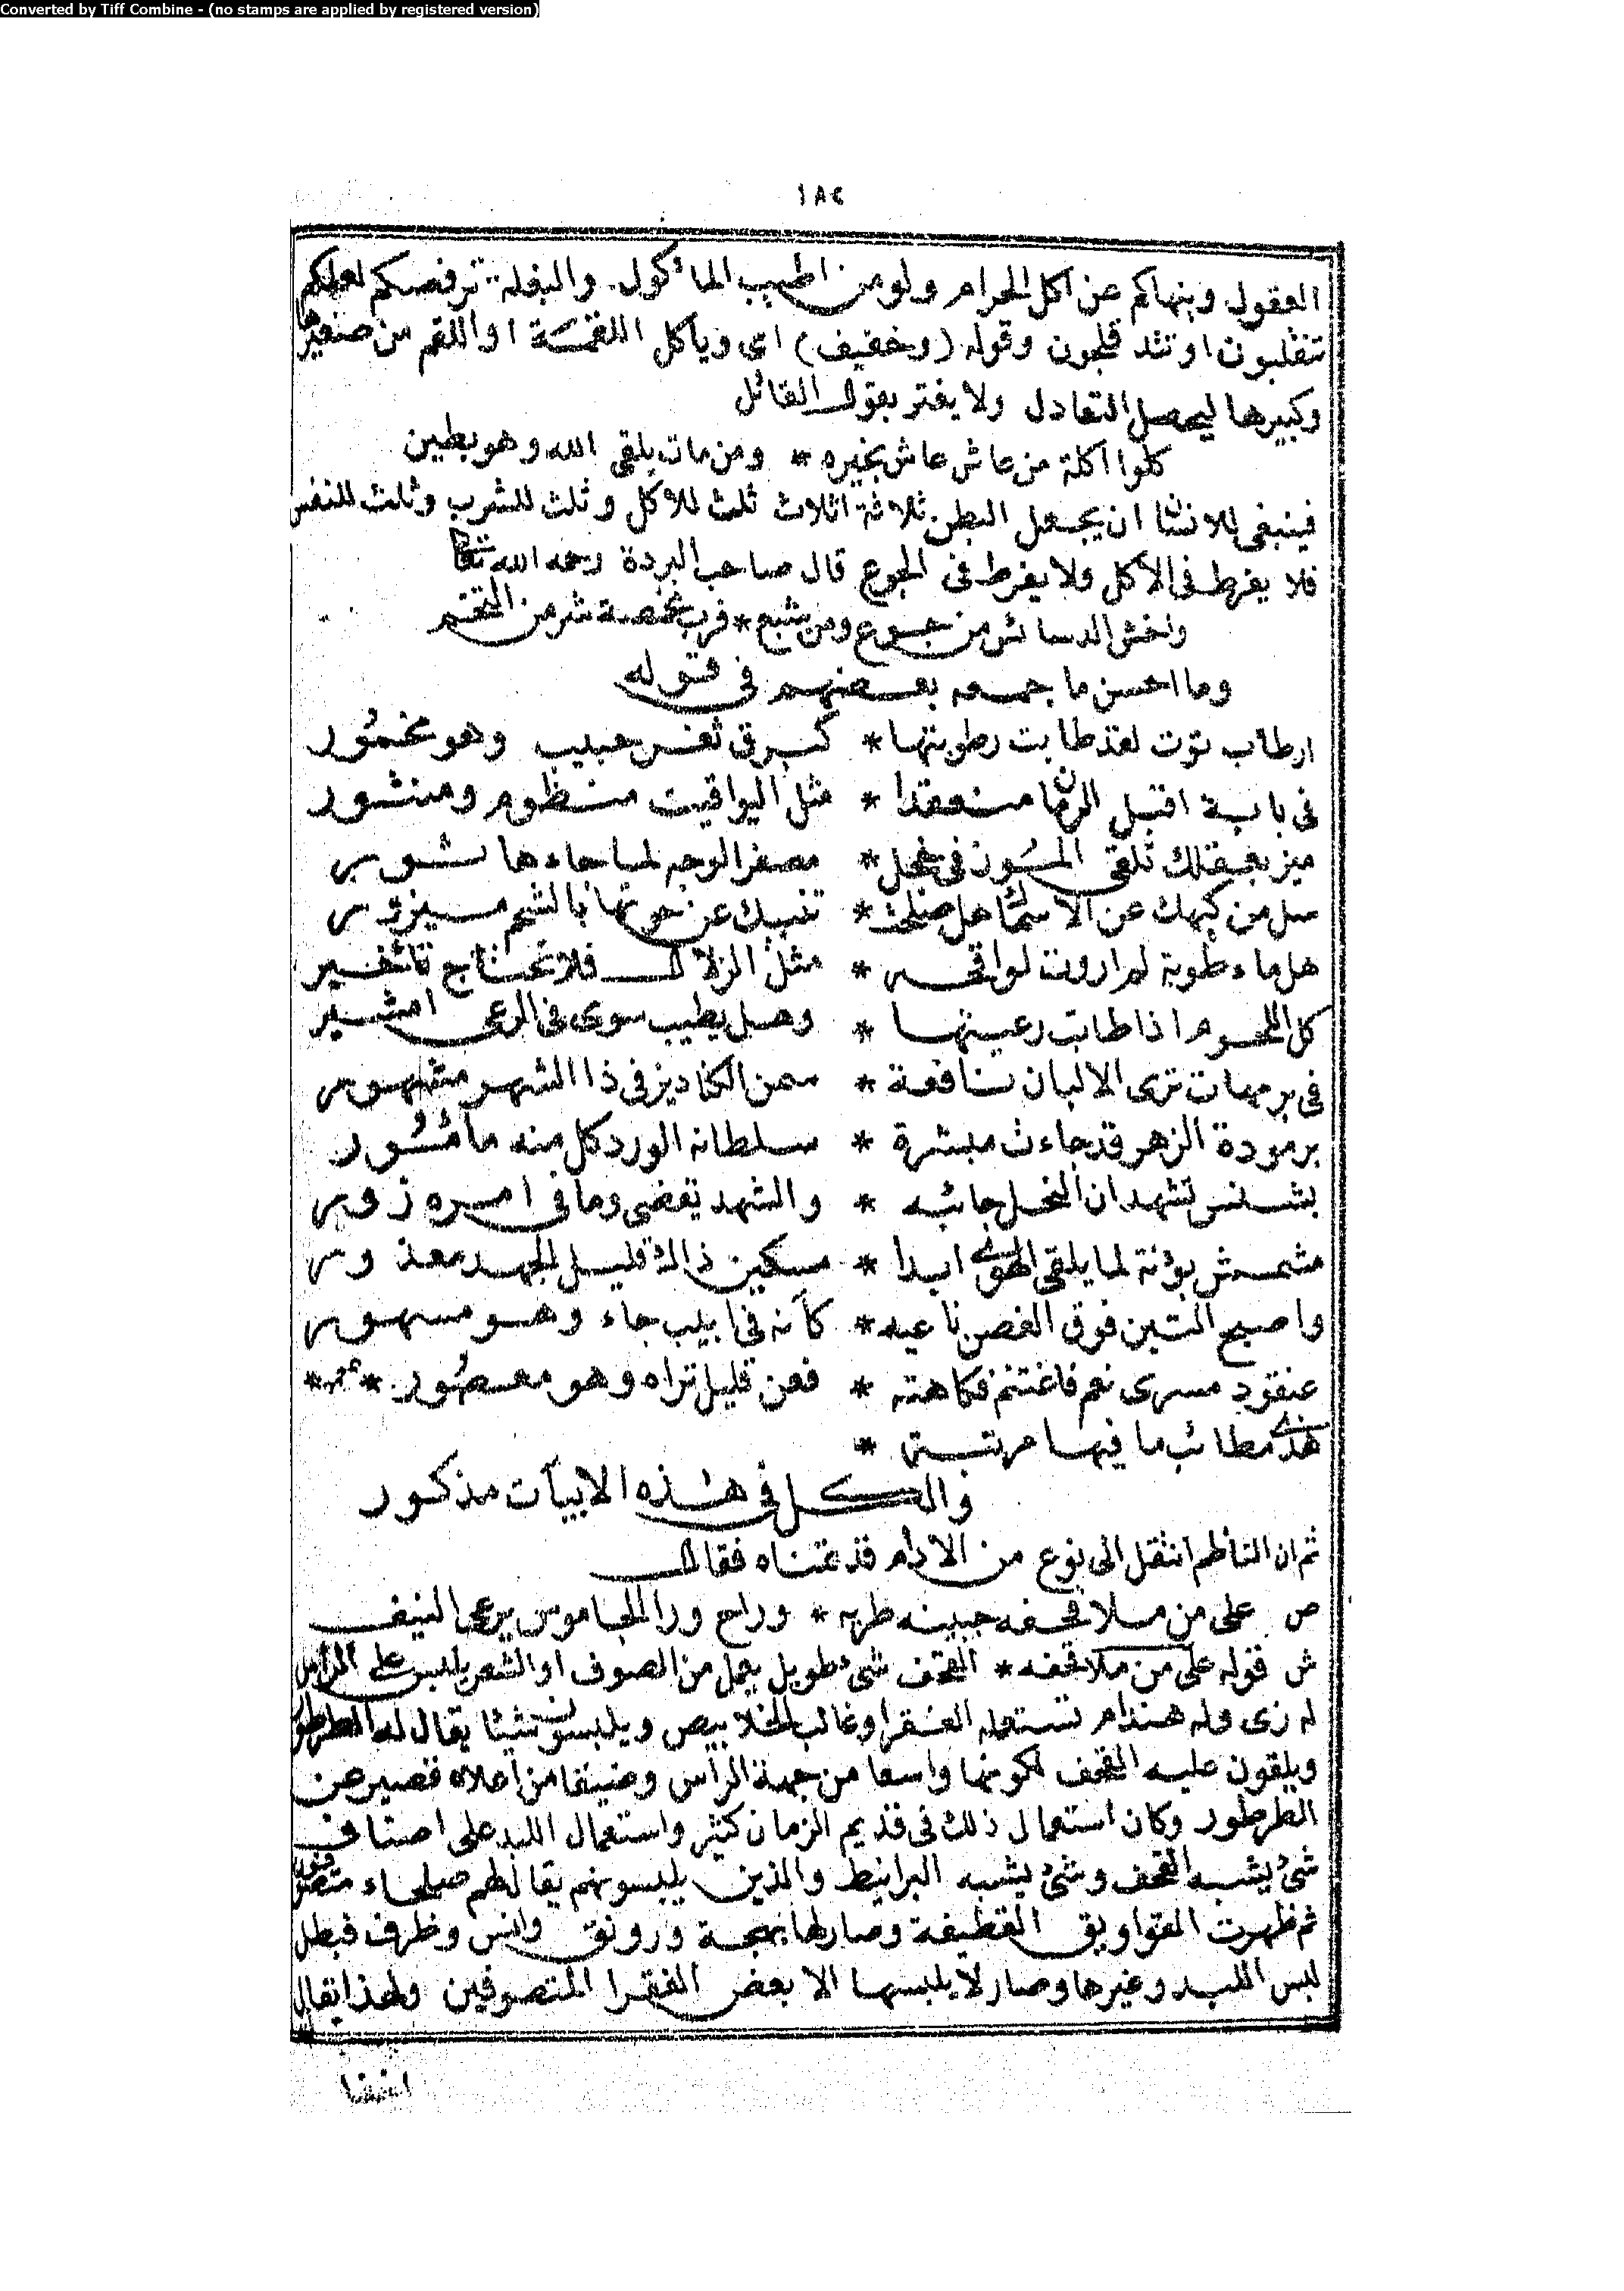 Converted by Tiff Combine - (no stamps are applied by registered version)
١٨٤
العقول وينهاكم عن اكل الحرام ولو من اطيب المأكول والبغلة ترفصكم لعلكم
تنقلبون او تندقلجون وقوله (وخفيف) اى وياكل اللقمة او اللقم من صغيرها
وكبيرها ليحصل التعادل ولا يغتر بقول القائل
كلوا اكلة من عاش عاش بخيره * ومن مات يلقى الله وهو بطين
فينبغى للانسان ان يجعل البطن ثلاثة اثلاث ثلث للأكل وثلث للشرب وثلث للنفس
فلا يفرط فى الاكل ولا يفرط فى الجوع قال صاحب البردة رحمه الله تعالى
واخش الدسائس من جوع ومن شبع * فرب مخمصة شر من التخم
وما احسن ما جمعه بعضهم فى قوله
ارطاب توت لقد طابت رطوبتها * كريق ثغر حبيب وهو مخمور
فى بابة اقبل الرمان منعقدا * مثل اليواقيت منظوم ومنثور
ميز بعقلك تلقى الموز فى خجل * مصفر الوجه لما جاء هاتور
سل من كيهك عن الاسماك هل صلحت * تنبيك عن حوتها بالشحم ميزور
هل ماء طوبة لم اروت لواقحه * مثل الزلال فلا تحتاج تأشير
كل اللحوم اذا طابت رعيتها * وهل يطيب سوى فى الرعى امشير
فى برمهات ترى الالبان نافعة * سمن الكاديز فى ذا الشهر مشهور
برمودة الزهر قد جاءت مبشرة * سلطانه الورد كل منه مأثور
بشنس تشهد ان النحل جائبه * والشهد يقضى وما فى امره زور
مشمش بؤنة لما يلقى الهوى ابدا * مسكين ذاك قليل الجهد معذور
واصبح التين فوق الغصن ناعيه * كأنه فى ابيب جاء وهو مسهور
عنقود مسرى نعم فاغتنم فكاهته * فعن قليل تراه وهو معصور *
هذى مطائب ما فيها مرتبة *
والكل فى هذه الابيات مذكور
ثم ان الناظم انتقل الى نوع من الادام قد تمناه فقال
ص على من ملا قحفه جبينه طريه * وراح ورا الجاموس يرعى النيف
ش قوله على من ملا قحفه * القحف شئ طويل يعمل من الصوف او الشعر يلبس على الراس
له زى وله هندام تستعمله الفقرا وغالب الخلابيص ويلبسون شيئا يقال له الطرطور
ويلقون عليه القحف لكونها واسعا من جهة الرأس وضيقا من اعلاه فصير عن
الطرطور وكان استعمال ذلك فى قديم الزمان كثير واستعمال اللبد على اصناف
شئ يشبه القحف وشئ يشبه البرانيط والذين يلبسونهم يقال لهم صلحاء متصوفون
ثم ظهرت القواويق القطيفة وصار لها بهجة ورونق وانس وظرف فبطل
لبس اللبد وغيرها وصار لا يلبسها الا بعض الفقرا المتصوفين ولهذا يقال